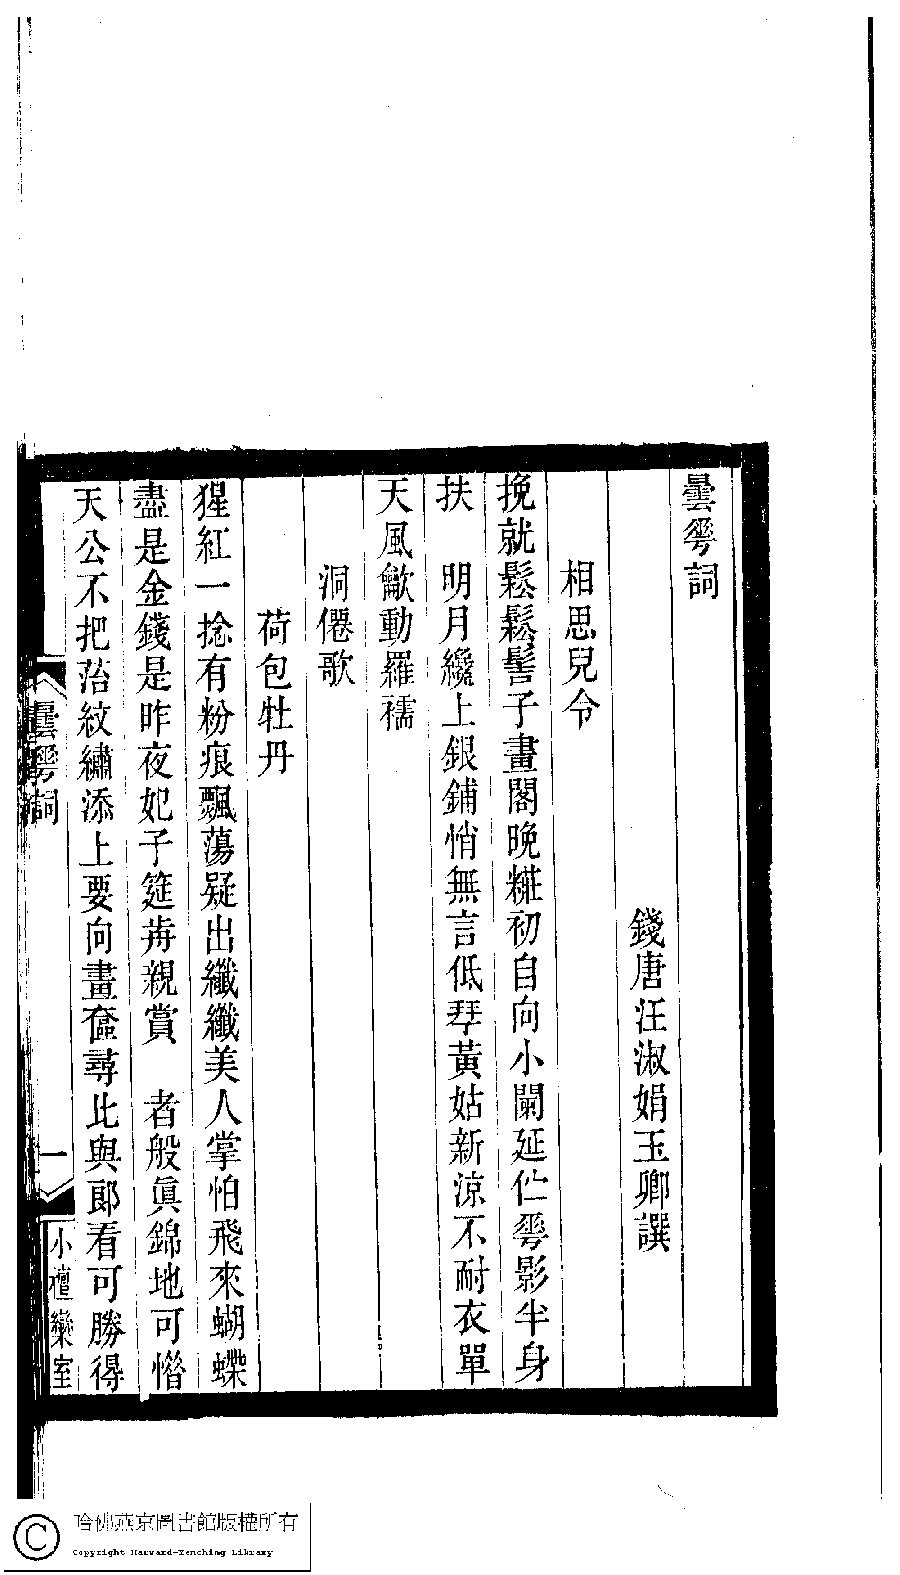 曇華詞
錢唐汪淑娟玉卿譔
相思兒令
挽就鬆鬆髻子畫閣晚糚初自向小闌延伫華影半身
扶　明月纔上銀鋪悄無言低拜黃姑新涼不耐衣單
天風歘動羅襦
洞僊歌
荷包牡丹
猩紅一捻有粉痕飄蕩疑出纖纖美人掌怕飛來蝴蝶
盡是金錢是昨夜妃子筵歬親賞　者般眞錦地可惜
天公不把萡紋繡添上要向畫奩尋比與郎看可勝得
曇華詞
一
小檀欒室
哈佛燕京圖書館版權所有
Copyright Harvard-Yenching Library